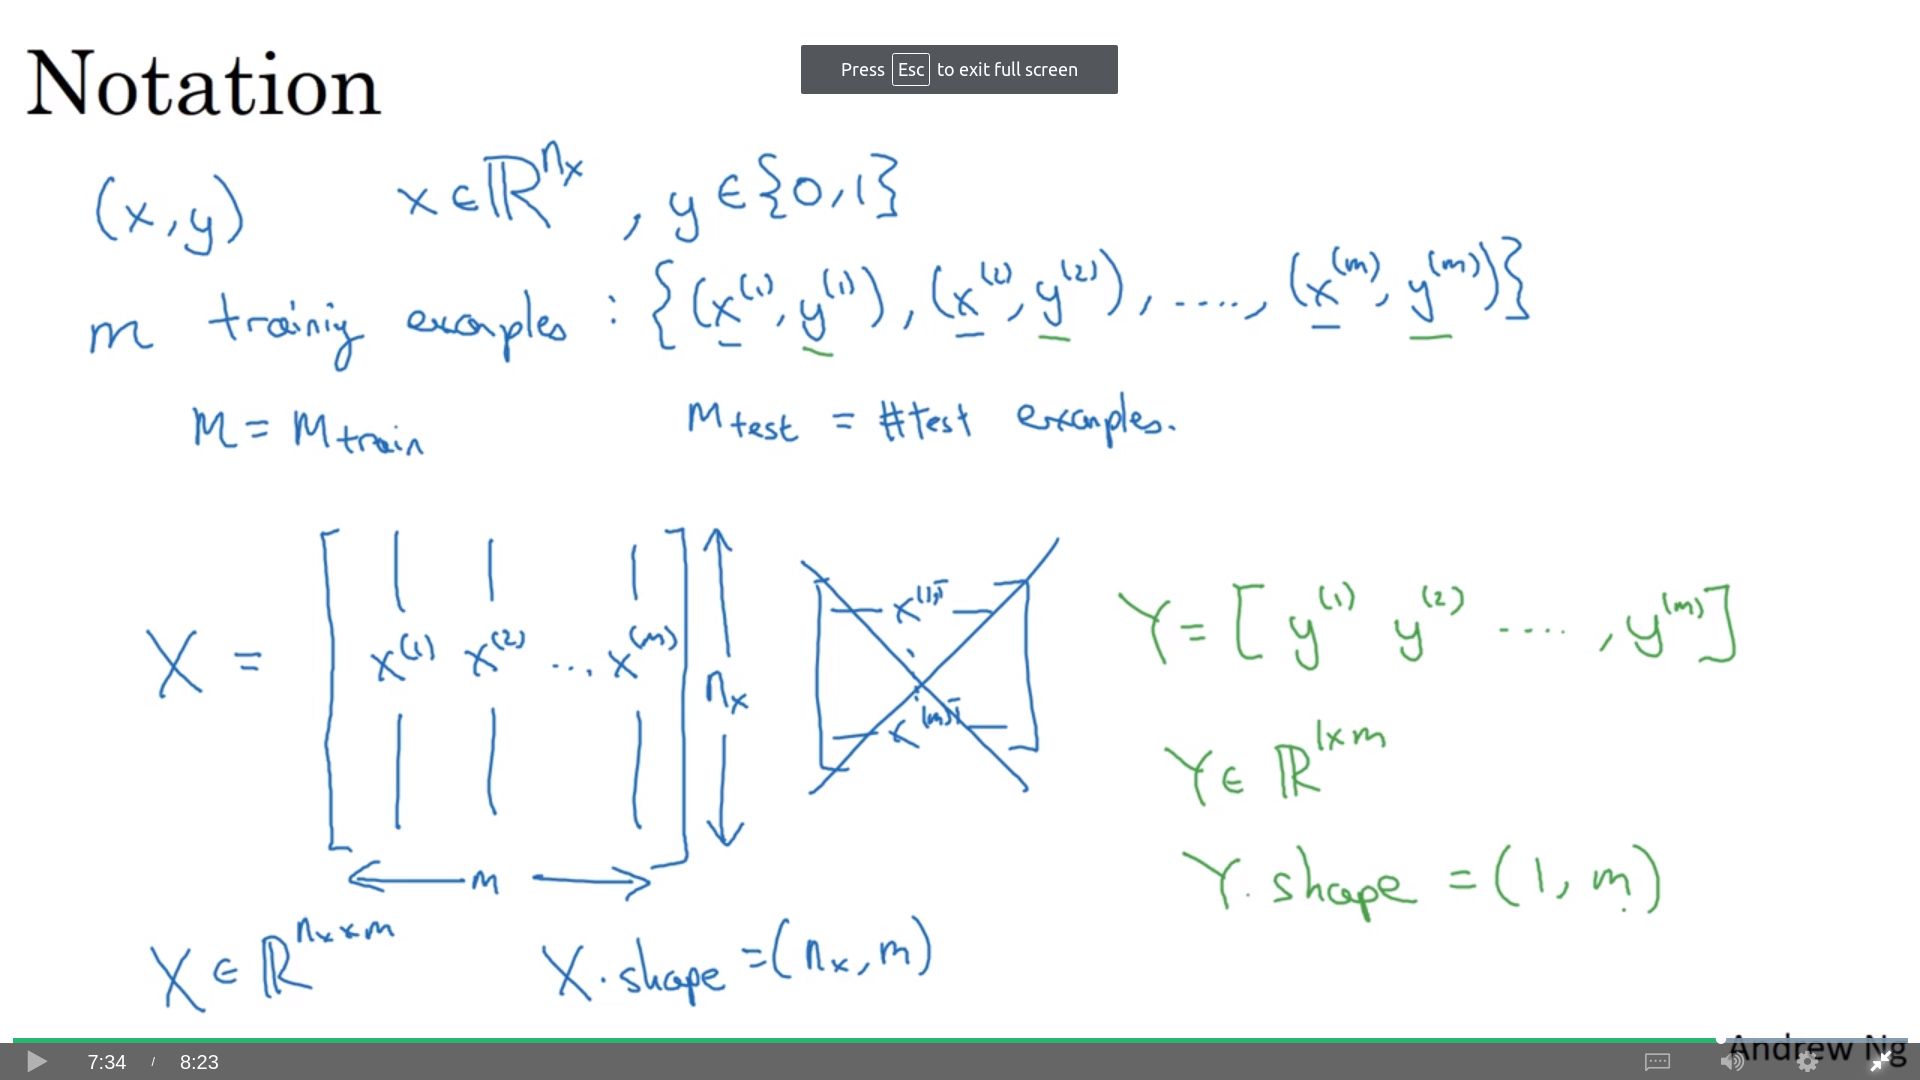 Notation
Press Esc to exit full screen
(x,y) x∈ℝ^{n_x}, y∈{0,1}
m training examples : {(x^{(1)}, y^{(1)}), (x^{(2)}, y^{(2)}), ....., (x^{(m)}, y^{(m)})}
M = M_{train} M_{test} = #test examples.
X = [x^{(1)} x^{(2)} ... x^{(m)}] n_x
m
x^{(1)T}
x^{(m)T}
Y = [y^{(1)} y^{(2)} ...., y^{(m)}]
Y∈ℝ^{1×m}
Y.shape = (1, m)
X∈ℝ^{n_x×m} X.shape = (n_x, m)
Andrew Ng
7:34 / 8:23